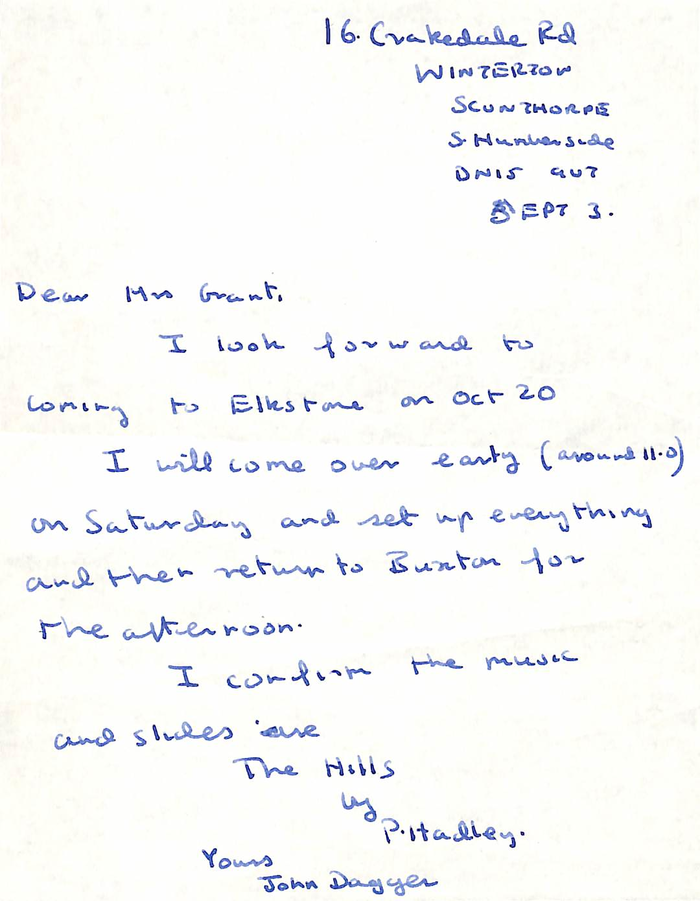 16. Crakedale Rd
WINTERTON
SCUNTHORPE
S. Humberside
DN15 9UT
SEPT 3.
Dear Mrs Grant,
I look forward to
coming to Elkstone on Oct 20
I will come over early (around 11.0)
on Saturday and set up everything
and then return to Buxton for
the afternoon.
I confirm the music
and slides are
The Hills
by
P. Hadley.
Yours
John Dagger